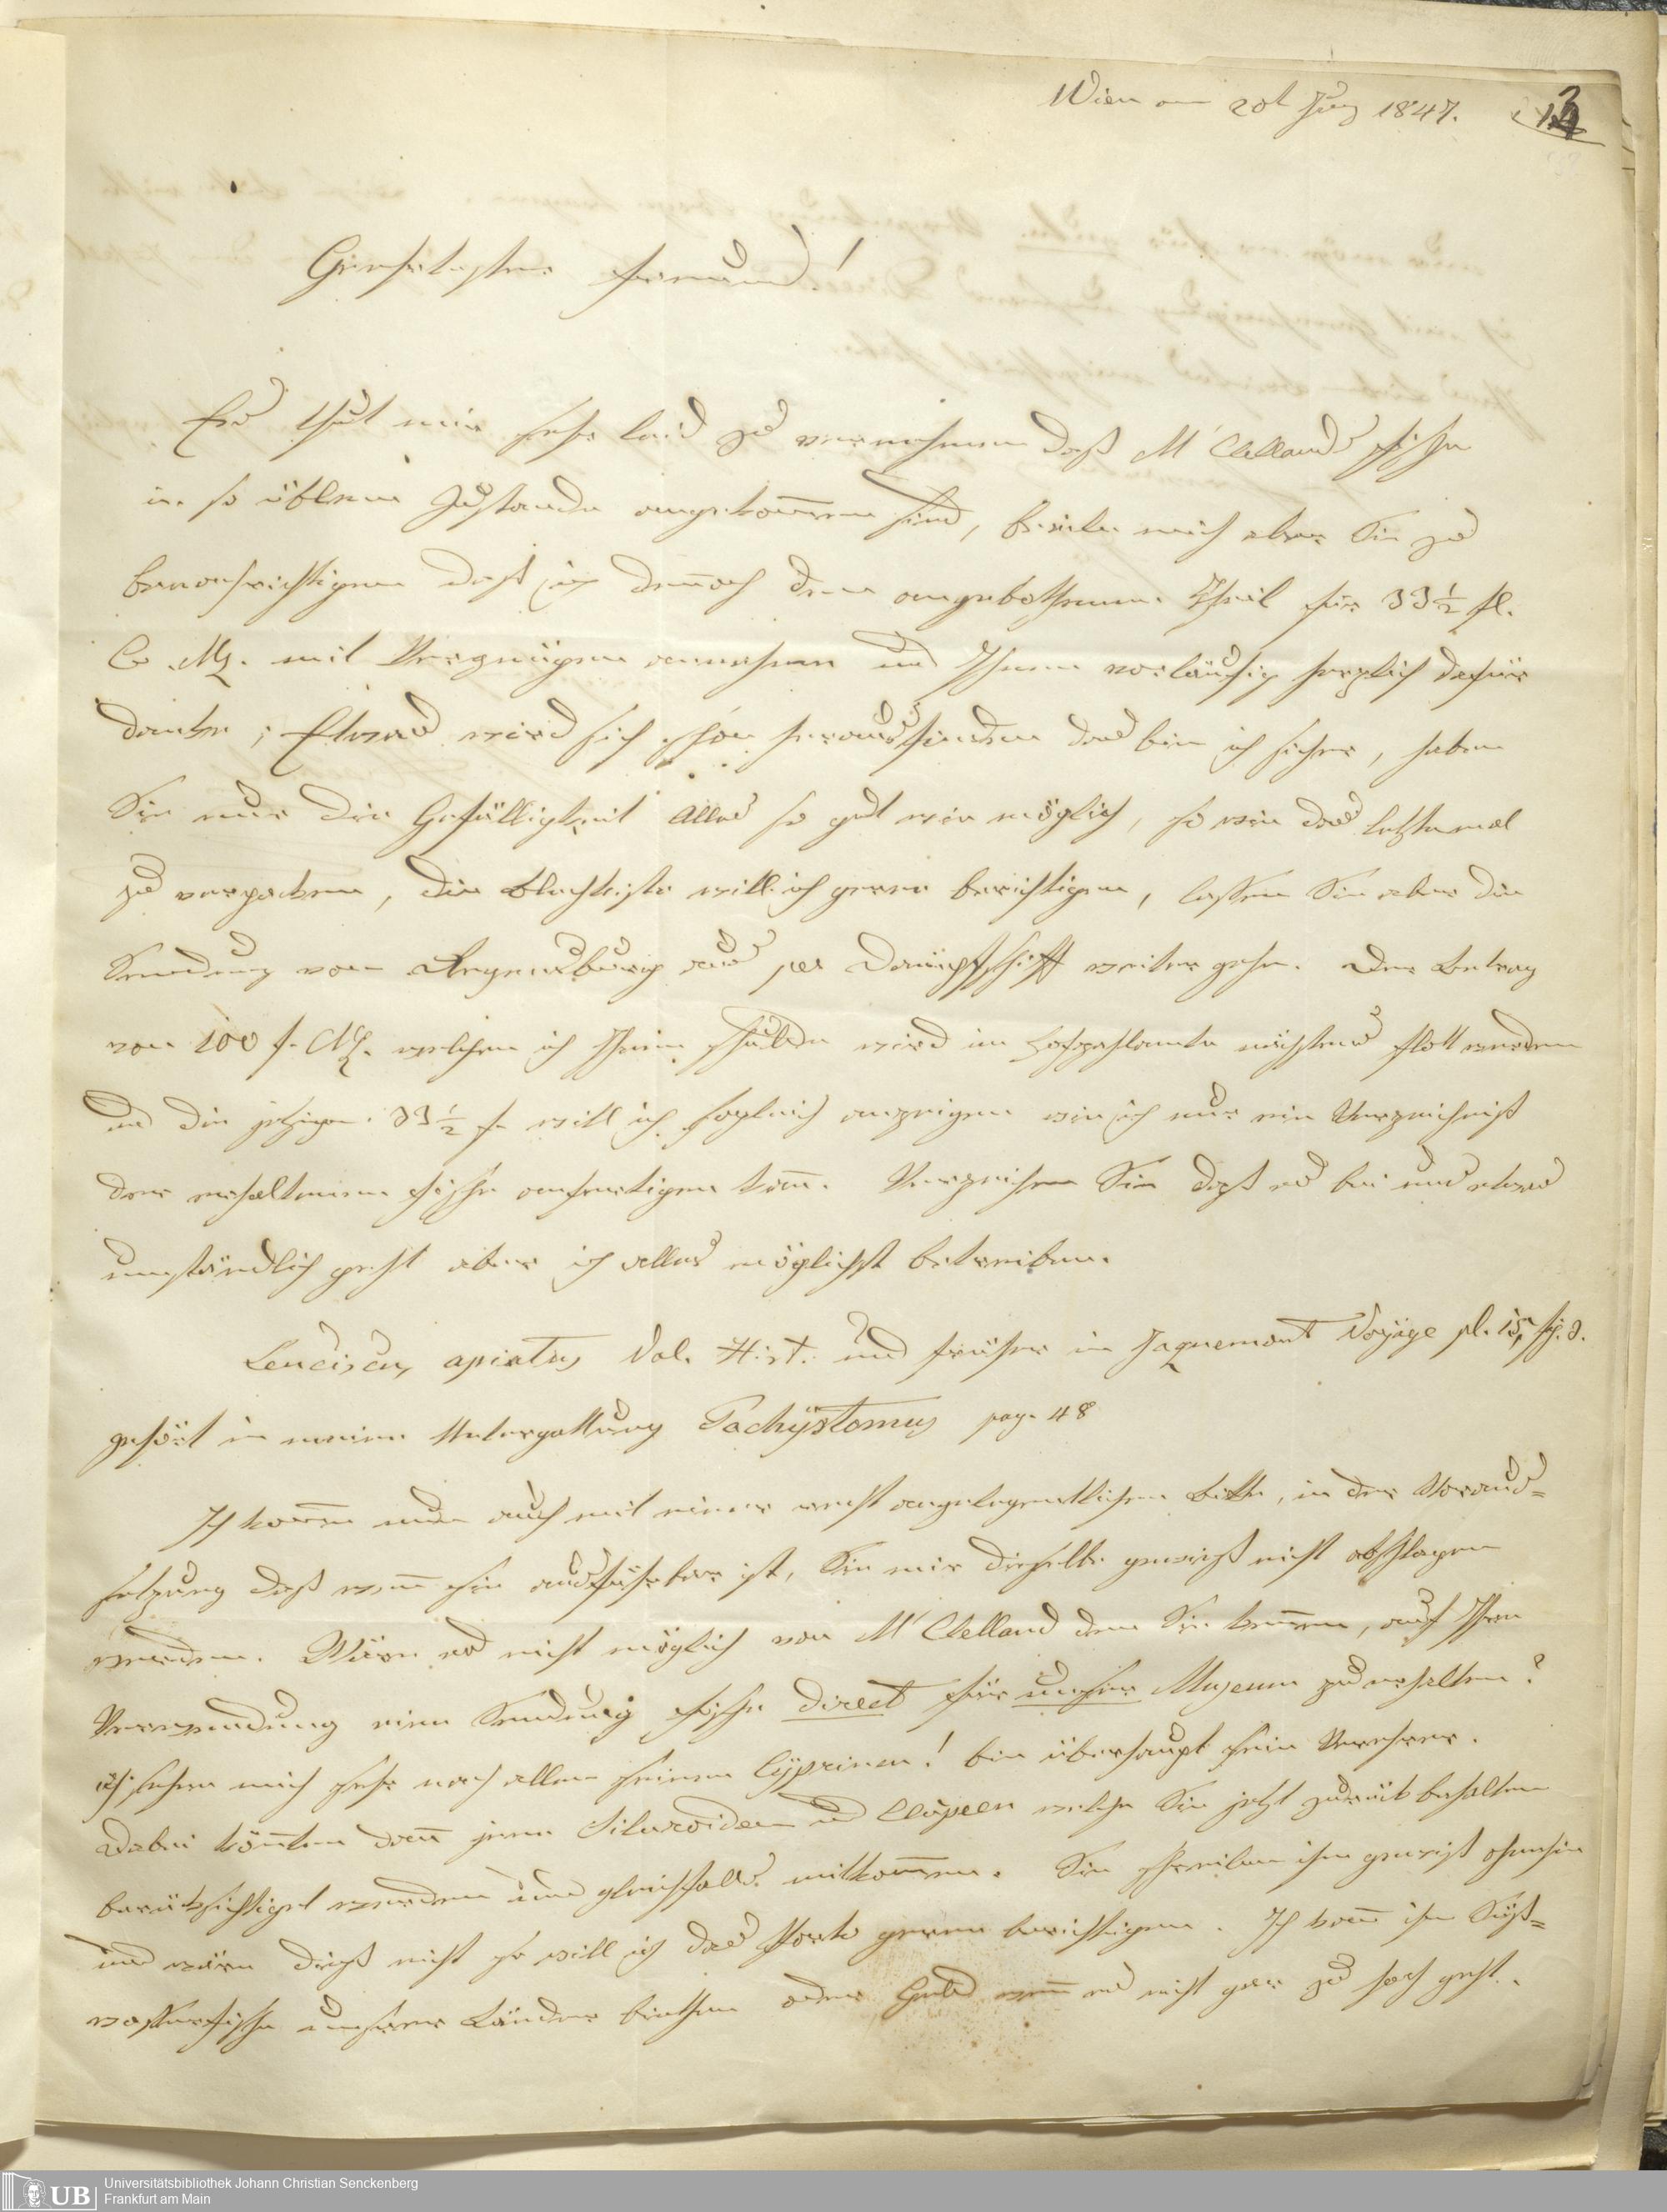 Wien am 20t Juny 1847.
13
Geehrtester Freund!
Es thut mir sehr leid zu vernehmen daß M'Clellands Fische
in so üblem Zustande angekom̅en sind, beeile mich aber Sie zu
benachrichtigen daß ich den̅och den angebothenen Theil für 33 ½ fl.
C. Mz. mit Vergnügen annehme und Ihnen vorläufig herzlich dafür
danke; Etwas wird sich schon herausfinden das bin ich sicher, haben
Sie nur die Gefälligkeit Alles so gut wie möglich, so wie das letztemal
zu verpacken, die Blechkiste will ich gerne berichtigen, lassen Sie aber die
Sendung von Regensburg aus per Dampfschiff weiter gehen. Der Betrag
von 100 f. CMz. welchen ich Ihnen schulde wird im Hofzahlamte nächstens flott werden
und die jetzigen 33 ½ f. will ich sogleich anzeigen wie ich nur ein Verzeichniß
der erhaltenen Fische anfertigen kan̅. Verzeihen Sie daß es bei uns etwas
umständlich geht aber ich alles möglichst betreiben.
Leuciscus apiatus Val. Hist. und früher in Jaquemont Voyage pl. 15, fig. 3.
gehört in meine Untergattung Pachystomus pag. 48
Ich kom̅e nun auch mit einer recht angelegentlichen Bitte, in der Voraus=
setzung daß wen̅ sie ausführbar ist, Sie mir dieselbe gewiß nicht abschlagen
werden. Wäre es nicht möglich von M'Clelland den Sie ken̅en, auf Ihre
Verwendung eine Sendung Fische direct für unser Museum zu erhalten?
ich sehne mich sehr nach allen seinen Cyprinen! bin überhaupt sein Verehrer.
Dabei kön̅ten dan̅ jene Siluroiden und Clupeen welche Sie jetzt zurück behalten
berücksichtiget werden und gleichfalls mitkom̅en. Sie schreiben ihm gewiß ohnehin
und wäre dieß nicht so will ich das Porto gerne berichtigen. Ich kan̅ ihm Süß=
wasserfische unserer Länder biethen oder Geld wen̅ es nicht gar zu hoch geht.
UB
Universitätsbibliothek Johann Christian Senckenberg
Frankfurt am Main